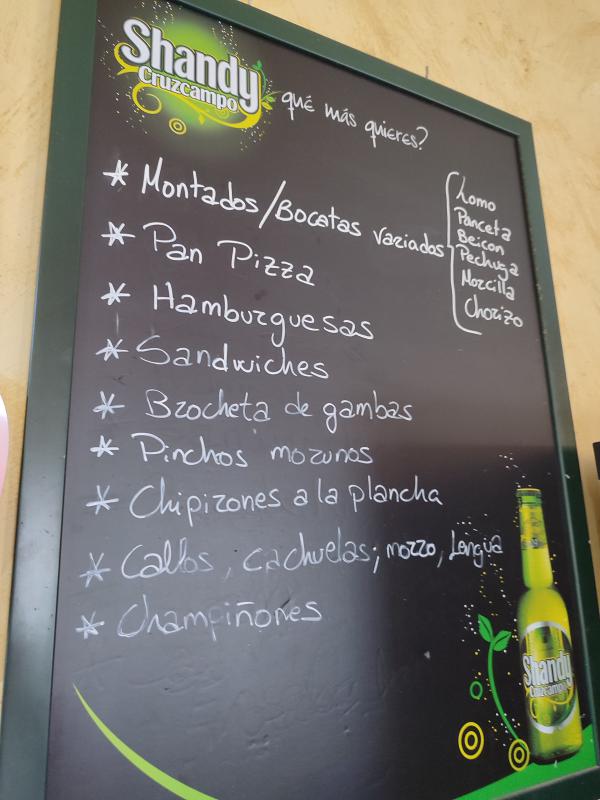 Shandy
Cruzcampo
qué más quieres?
* Montados/Bocatas variados
Lomo
Panceta
Beicon
Pechuga
Morcilla
Chorizo
* Pan Pizza
* Hamburguesas
* Sandwiches
* Brocheta de gambas
* Pinchos morunos
* Chipirones a la plancha
* Callos, cachuelas; morro, Lengua
* Champiñones
Shandy
Cruzcampo